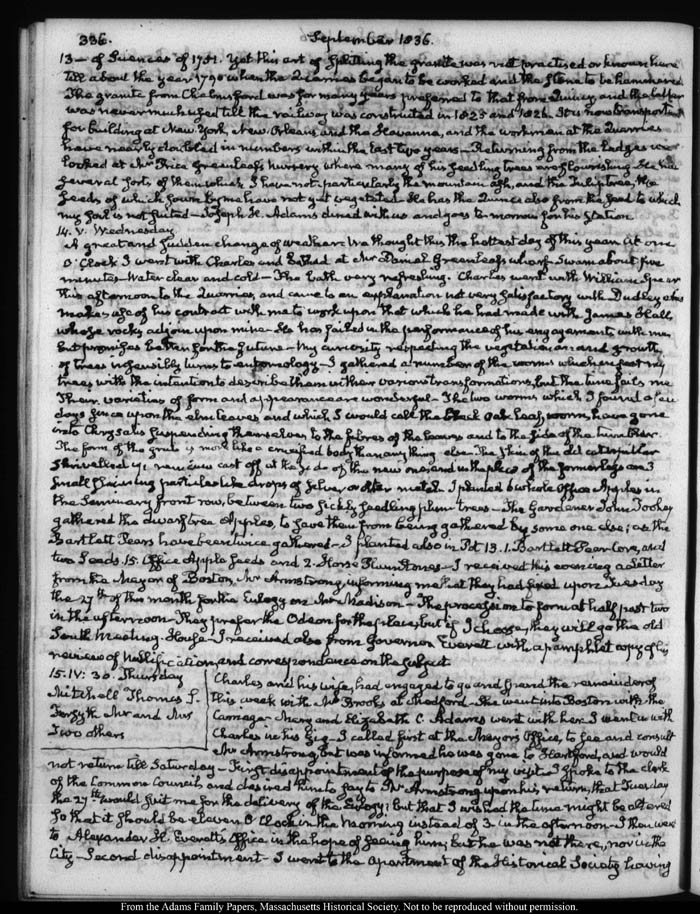 336. September 1836.
13— of Sciences of 1751. Yet this art of splitting the granite was not practised or known here
till about the year 1790 when the Quarries began to be worked and the Stone to be hammered.
The granite from Chelmsford was for many years preferred to that from Quincy, and the latter
was never much used till the railway was constructed in 1825 and 1826. It is now transported
for building at New York, New Orleans and the Havanna, and the workmen at the Quarries
have nearly doubled in numbers within the last two years— Returning from the Ledges we
looked at Mr Price Greenleaf's nursery where many of his seedling trees are flourishing. He has
several sorts of them which I have not, particularly the mountain ash, and the Tulip tree, the
seeds of which sown by me have not yet vegetated. He has the Quince also from the seed to which
my soil is not suited— Joseph H. Adams dined with us and goes to-morrow for his Station.
14. V. Wednesday
A great and sudden change of weather. We thought this the hottest day of this year. At one
O'Clock I went with Charles and bathed at Mr Daniel Greenleaf's wharf— Swam about five
minutes— Water clear and cold— The bath very refreshing. Charles went with William Spear
this afternoon to the Quarries, and came to an explanation not very satisfactory with Dudley who
makes use of his contract with me to work upon that which he had made with James Hall,
whose rocks adjoin upon mine— He has failed in the performance of his engagements with me,
but promises better for the future— My curiosity respecting the vegetation and growth
of trees insensibly turns to entomology— I gathered a number of the worms which infest my
trees with the intention to describe them in their various transformations, but the time fails me
Their varieties of form and appearance are wonderful— The two worms which I found a few
days since upon the elm leaves, and which I would call the black Oak leaf worm, have gone
into Chrysalis suspending themselves to the fibres of the leaves and to the side of the tumbler.
The form of the grub is more like a crucified body than any thing else. The skin of the old caterpillar
shrivelled up, remains cast off at the side of the new one, and in the place of the former legs are 3
small shining particles like drops of silver or other metal— I planted 6 whole Office Apples in
the Seminary front row, between two sickly seedling plum trees— The Gardener John Tookey
gathered the dwarf tree Apples, to save them from being gathered by some one else; as the
Bartlett Pears have been twice gathered— I planted also in Pot 13. 1. Bartlett Pear Core, and
two Seeds. 15. Office Apple seeds and 2. Horse Plum Stones— I received this evening a Letter
from the Mayor of Boston, Mr Armstrong, informing me that they had fixed upon Tuesday
the 27th of this month for the Eulogy on Mr Madison— The procession to form at half past two
in the afternoon— They prefer the Odeon for the place, but if I choose, they will go to the old
South Meeting-House— I received also from Governor Everett with a pamphlet copy of his
reviews of Nullification, and correspondence on the subject
15. IV: 30. Thursday
Mitchell Thomas S.
Forsyth Mr and Mrs
Two others
Charles and his wife, had engaged to go and spend the remainder of
this week with Mr Brooks at Medford— She went into Boston with the
Carriage. Mary and Elizabeth C. Adams went with her. I went in with
Charles in his gig— I called first at the Mayor's Office, to see and consult
Mr Armstrong, but was informed he was gone to Hartford, and would
not return till Saturday— First disappointment of the purpose of my visit. I spoke to the clerk
of the Common Council and desired him to say to Mr Armstrong upon his return, that Tuesday
the 27th would suit me for the delivery of the Eulogy; but that I wished the time might be altered
so that it should be eleven O'Clock in the morning instead of 3 in the afternoon— I then went
to Alexander H. Everett's Office in the hope of seeing him; but he was not there, nor in the
City— Second disappointment— I went to the apartment of the Historical Society having
From the Adams Family Papers, Massachusetts Historical Society. Not to be reproduced without permission.